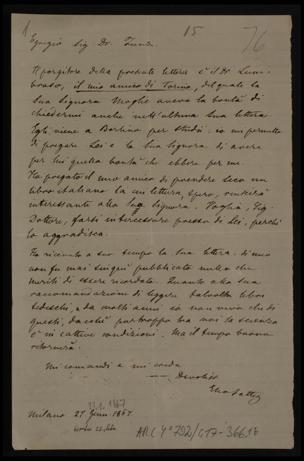 15
76
Egregio Sig. Dr.
Il porgitore della presente lettera è il Dr. Lom-
broso, il mio amico di Torino, del quale la
Sua Signora Moglie aveva la bontà di
chiedermi anche nell'ultima Sua lettera
Egli viene a Berlino per studi: io mi permetto
di pregare Lei e la Sua Signora di avere
per lui quella bontà che ebbero per me.
Ho pregato il mio amico di prendere seco un
libro italiano la cui lettura, spero, riuscirà
interessante alla Sua Signora. Voglia, Sig.
Dottore, farsi interessare presso di Lei, perchè
lo aggradisca.
Ho ricevuto a suo tempo la Sua lettera: di mio
non fu mai sinqui pubblicato nulla che
meriti di essere ricordato. Quanto alla Sua
raccomandazione di leggere talvolta libri
tedeschi, è da molti anni io non vivo che di
questi, da chè purtroppo tra noi la scienza
è in cattive condizioni. Ma il tempo buono
ritornerà.
Mi comandi e mi creda
Devotiss.
Milano 27